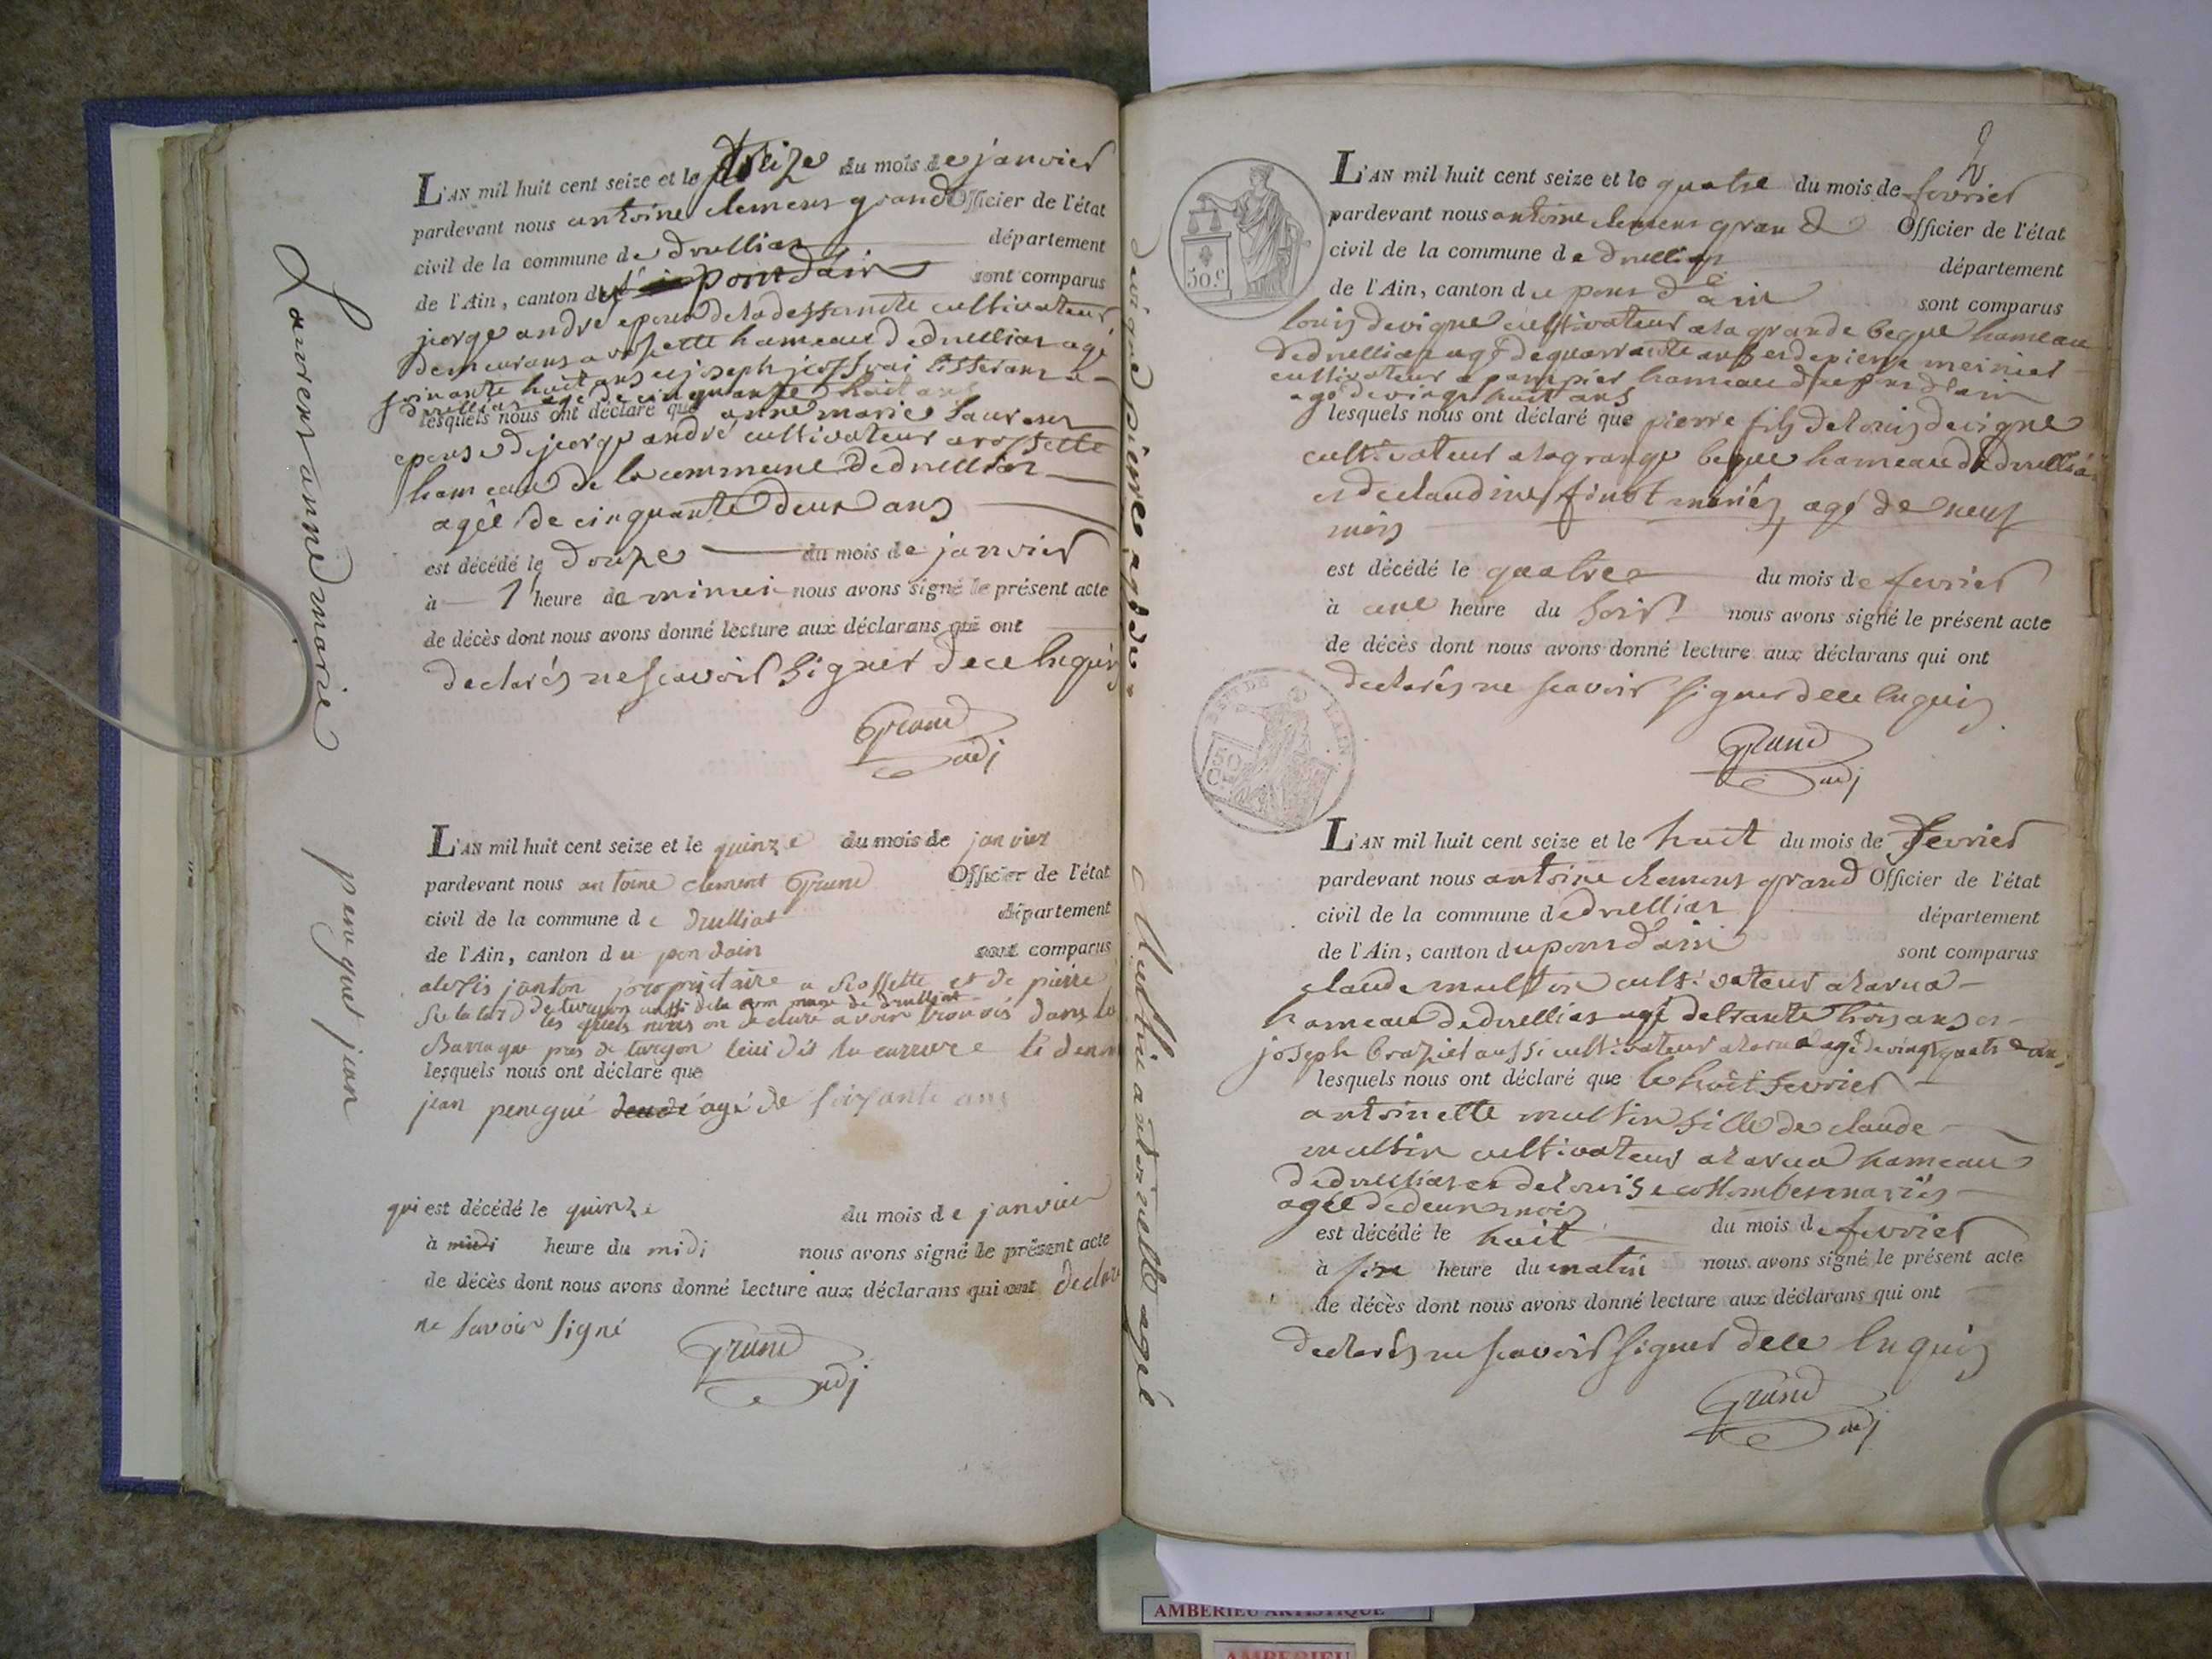 Lauvent anne marie
L'AN mil huit cent seize et le treize du mois de janvier
pardevant nous antoine clement grand Officier de l'état
civil de la commune de druilliat département
de l'Ain, canton du pont d'ain sont comparus
jeorge andré epoux de la dessandte cultivateur
demeurans a rossette hameaud dedruillias agé
soixante huit ans et joseph tisseran a
druillias agé de cinquante huit ans
lesquels nous ont déclaré que anne marie Lauvent
epouse de jeorge andré cultivateur a rossette
hameaud de la commune dedruillias
agée de cinquante deux ans
est décédé le douze du mois de janvier
à 1 heure de minui nous avons signé le présent acte
de décès dont nous avons donné lecture aux déclarans qui ont
declarés ne scavoir signer de ce enquis
Grand
adj
peneguet jean
L'AN mil huit cent seize et le quinze du mois de janvier
pardevant nous antoine clement Grand Officier de l'état
civil de la commune de druillat département
de l'Ain, canton du pon dain sont comparus
alexis janton propriétaire a Rossette et de pierre
de turgon aussi de la commune de druillat
les quels nous on declaré avoir trouvés dans la
Baraque pres de turgon
lesquels nous ont déclaré que
jean penegué agé de soixante ans
qui est décédé le quinze du mois de janvier
à midi heure du midi nous avons signé le présent acte
de décès dont nous avons donné lecture aux déclarans qui ont declaré
ne savoir signé
Grand
adj
devigne pierre agé de
2
50 c
L'AN mil huit cent seize et le quatre du mois de fevrier
pardevant nous antoine clement grand Officier de l'état
civil de la commune de druillias département
de l'Ain, canton du pont d'ain sont comparus
louis devigne cultivateur a la grande beque hameau
dedruillias agé dequarrante ans et de pierre meiniet
cultivateur a pampier hameaud du pont d'ain
agé de vingt huit ans
lesquels nous ont déclaré que pierre fils de louis devigne
cultivateur a la grange beque hameaud de druillias
et de claudine finot mariés, agé de neuf
mois
est décédé le quatre du mois de fevrier
à une heure du soir nous avons signé le présent acte
de décès dont nous avons donné lecture aux déclarans qui ont
declarés ne scavoir signer de ce enquis
Grand
adj
DE L'AIN
50 C
Multin antoinette agé
L'AN mil huit cent seize et le huit du mois de fevrier
pardevant nous antoine clement grand Officier de l'état
civil de la commune dedruillias département
de l'Ain, canton du pont d'ain sont comparus
claude multin cultivateur a larua
hameau dedruillias agé de trante trois ans et
joseph brazier aussi cultivateur a larua agé de vingt quatre ans
lesquels nous ont déclaré que le huit fevrier
antoinette multin fille de claude
multin cultivateur a larua hameau
dedruillias et de louise collombet mariés
agée de deux mois
est décédé le huit du mois de fevrier
à six heure du matin nous avons signé le présent acte
de décès dont nous avons donné lecture aux déclarans qui ont
declarés ne scavoir signer de ce enquis
Grand
adj
AMBERIEU ARTISTIQUE
AMBERIEU